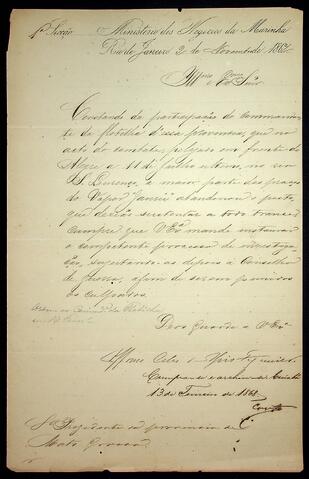 1ª Secção Ministerio dos Negocios da Marinha
Rio de Janeiro 2 de Novembro de 1867.
Illmo e Exmo Snr
Constando da participação do Commandan-
te da flotilha d'essa provincia, que no
acto do combate, pelejado em frente do
Alegre a 11 de Junho ultimo, no rio
S. Lourenço, a maior parte das praças
do Vapor Jaurú abandonou o posto,
que devião sustentar a todo transe;
Cumpre que V Exª mande instaurar
o competente processo de investiga-
ção, sujeitando-as depois a Conselho
de Guerra, afim de serem punidos
os culpados.
Deos Guarde a V Exª
Affonso Celso de Assis Figueiredo
Cumpra-se e archive-se Cuiabá
13 de Janeiro de 1868
Couto
Sr Presidente da provincia de
Mato Grosso